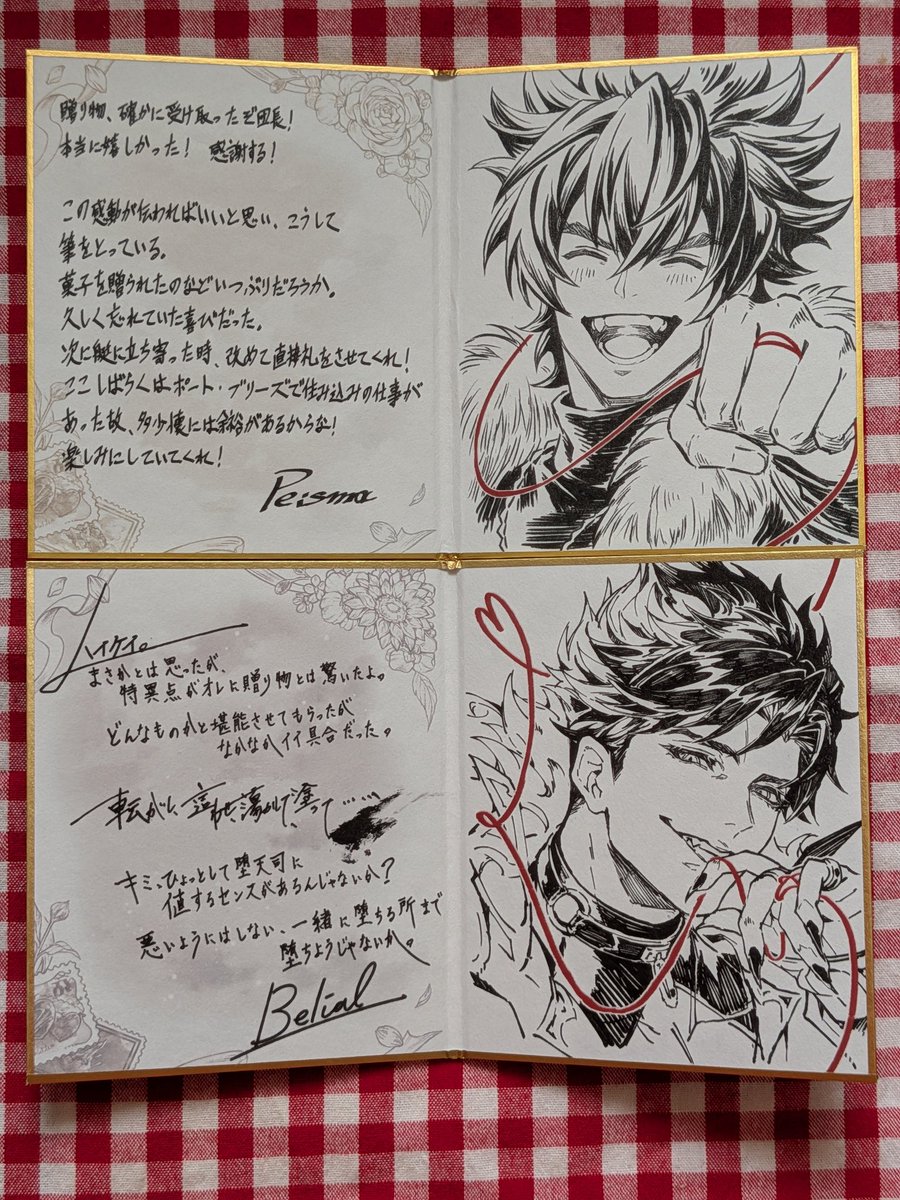 贈り物、確かに受け取ったぞ団長!
本当に嬉しかった! 感謝する!
この感動が伝わればいいと思い、こうして
筆をとっている。
菓子を贈られたのなどいつぶりだろうか。
久しく忘れていた喜びだった。
次に艇に立ち寄った時、改めて直接礼をさせてくれ!
ここしばらくはポート・ブリーズで住み込みの仕事が
あった故、多少懐には余裕があるからな!
楽しみにしていてくれ!
Peisma
ハイケイ。
まさかとは思ったが、
特異点がオレに贈り物とは驚いたよ。
どんなものかと堪能させてもらったが
なかなかイイ具合だった。
転がし、這わせ、蕩かして、塗って……
キミ、ひょっとして堕天司に
値するセンスがあるんじゃないか?
悪いようにはしない、一緒に堕ちる所まで
堕ちようじゃないか。
Belial